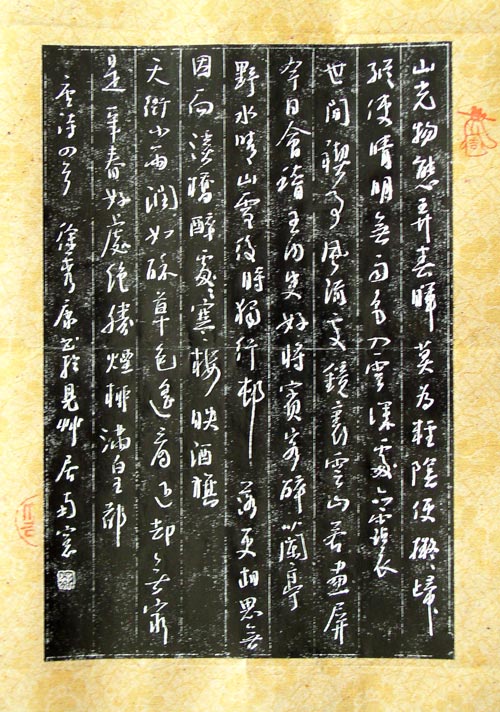 山光物態弄春暉莫為輕陰便擬歸
縱使晴明無雨色入雲深處亦霑衣
世間禊事風流處鏡裏雲山若畫屏
今日會稽王內史好將賓客醉蘭亭
野水晴山雪後時獨行村落更相思無
因一向溪橋醉處處寒梅映酒旗
天街小雨潤如酥草色遙看近却無最
是一年春好處絕勝煙柳滿皇都
唐詩四首 徐秀康書於見艸居南窗